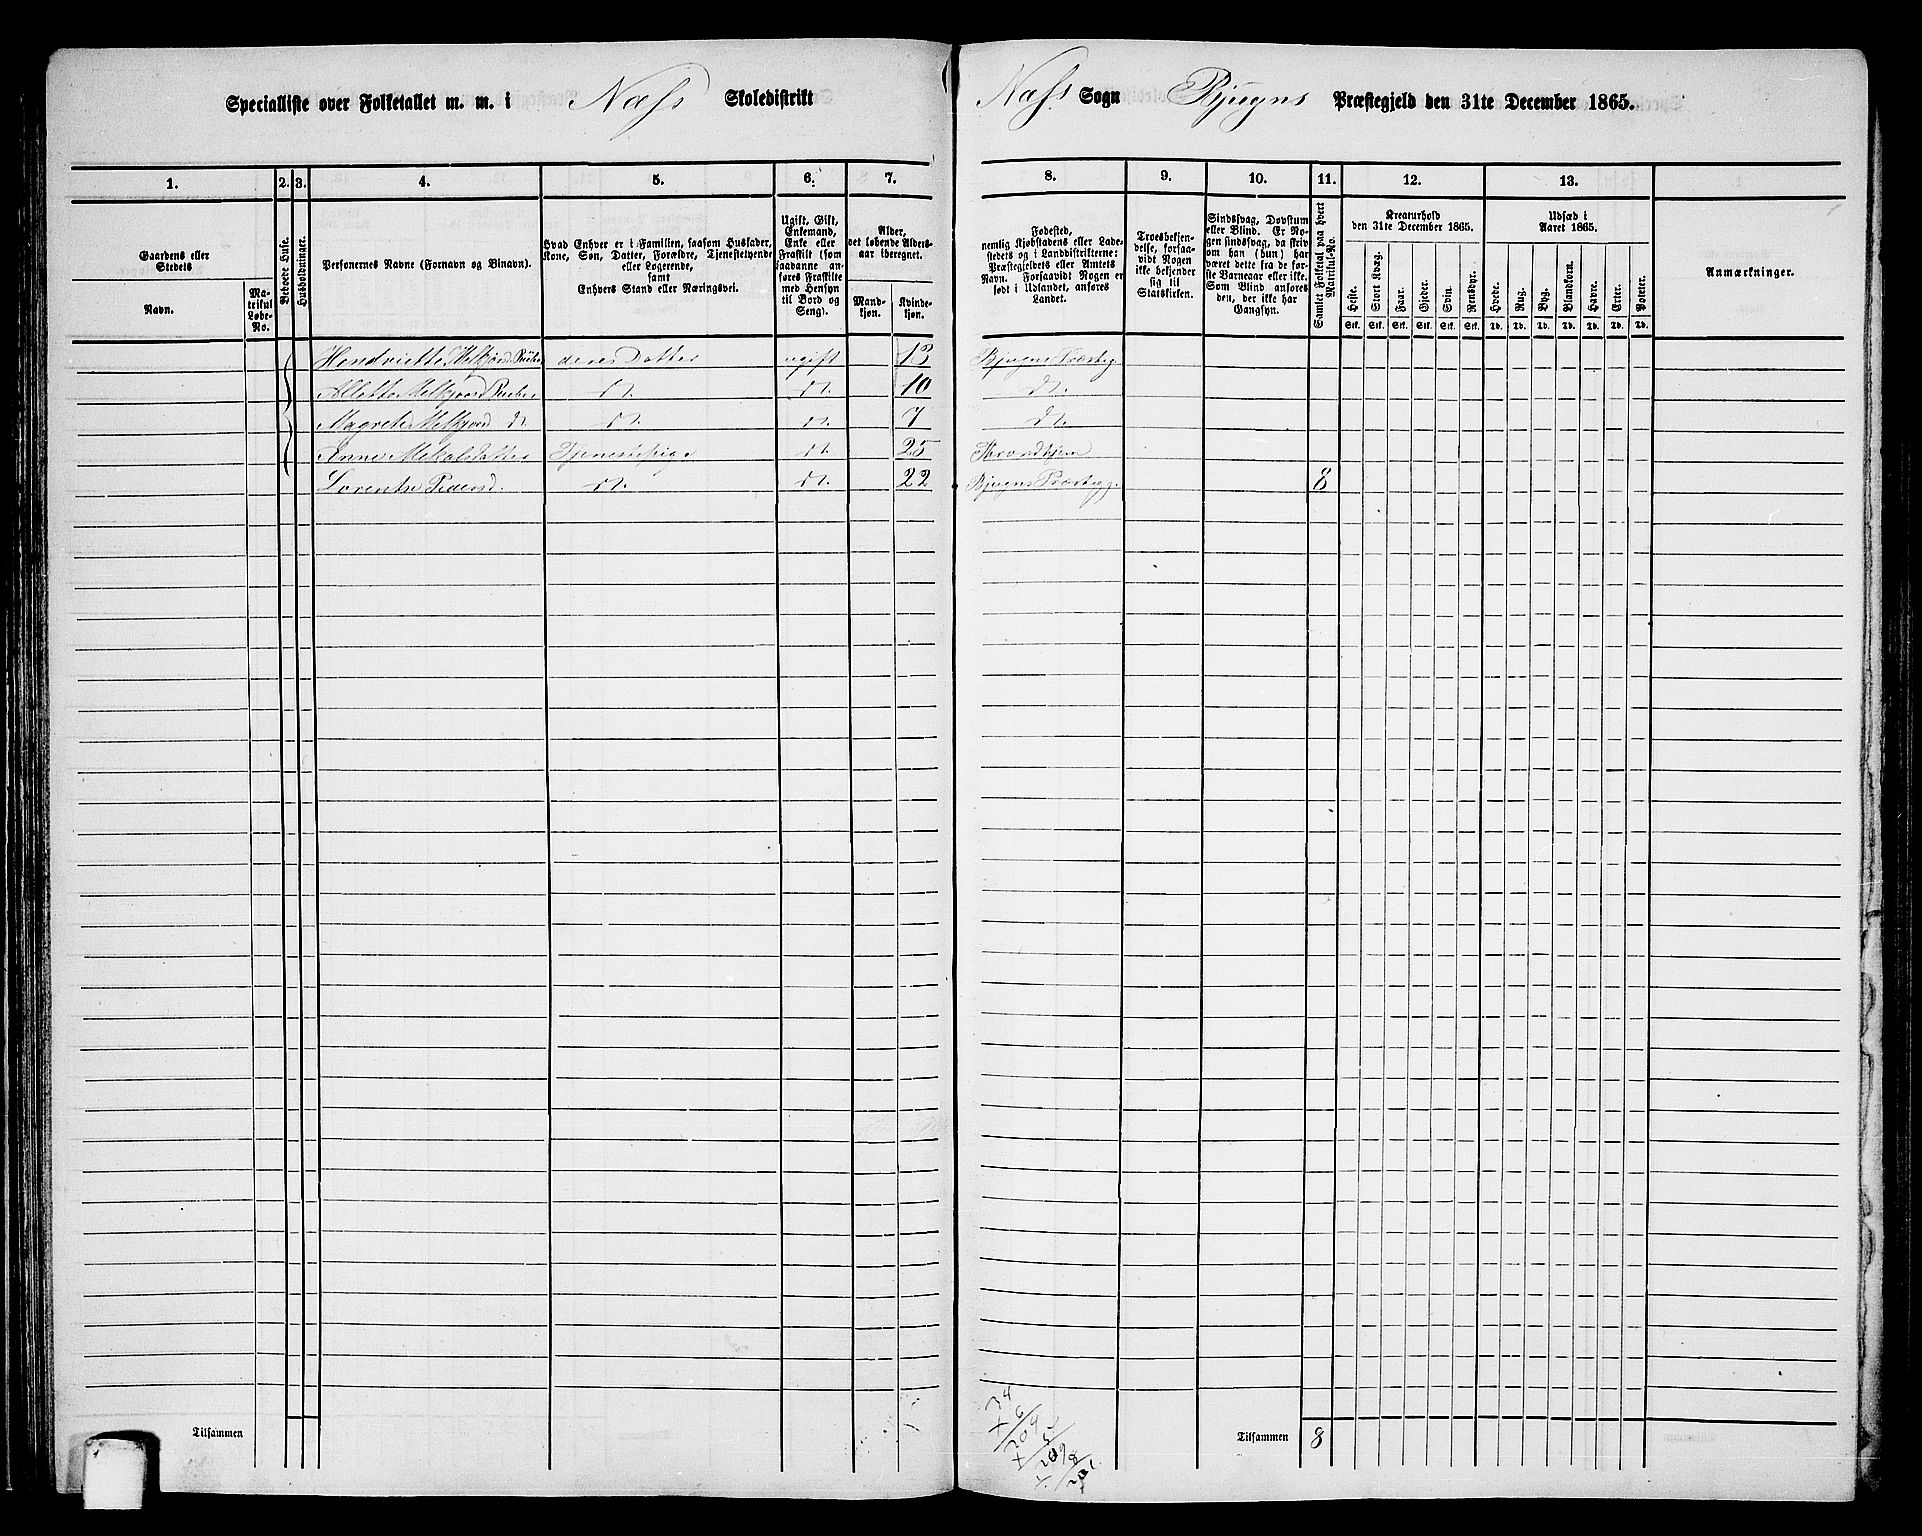 Specialliste over Folketallet m. m. i Næss Skoledistrikt
Næss Sogn Bjugns Præstegjeld den 31te December 1865.
1. 2. 3. 4. 5. 6. 7.
8. 9. 10. 11. 12. 13.
Gaardens eller Stedets
Navn.
Matrikul Løbe-No.
Beboede Huse.
Husholdninger.
Personernes Navne (Fornavn og Binavn).
Hvad Enhver er i Familien, saasom Husfader, Kone, Søn, Datter, Forældre, Tjenestetyende eller Logerende, samt Enhvers Stand eller Næringsvei.
Ugift, Gift, Enkemand, Enke eller Fraskilt (som saadanne anføres Fraskilte med Hensyn til Bord og Seng).
Alder, det løbende Aldersaar iberegnet.
Mandkjøn.
Kvindekjøn.
Fødested, nemlig Kjøbstadens eller Ladestedets og i Landdistrikterne: Præstegjeldets eller Amtets Navn. Forsaavidt Nogen er født i Udlandet, anføres Landet.
Troesbekjendelse, forsaavidt Nogen ikke bekjender sig til Statskirken.
Sindssvag, Døvstum eller Blind. Er Nogen sindssvag, da skrives om han (hun) har været dette fra de første Barneaar eller ikke. Som Blind anføres den, der ikke har Gangsyn.
Samlet Folketal paa hvert Matrikul-No.
Kreaturhold den 31te December 1865.
Heste. Stort Kvæg. Faar. Gjeder. Svin. Rensdyr.
Stk. Stk. Stk. Stk. Stk. Stk.
Udsæd i Aaret 1865.
Hvede. Rug. Byg. Blandkorn. Havre. Erter. Poteter.
Td. Td. Td. Td. Td. Td. Td.
Anmærkninger.
deres Datter ugift 13 Bjugns Præsteg.
dt. dt. 10 dt.
Magrete dt dt. dt. 7 dt.
Anne Tjenestepige dt. 25 Trondhjem
Pedersd. dt. dt. 22 Bjugns Præsteg. 8
Tilsammen
Tilsammen 8